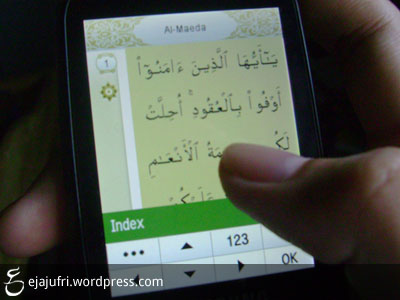 Al-Maeda
1
يَـٰٓأَيُّهَا ٱلَّذِينَ ءَامَنُوٓا۟
أَوْفُوا۟ بِٱلْعُقُودِ ۚ أُحِلَّتْ
ٱلْأَنْعَـٰمِ
Index
123
OK
ejajufri.wordpress.com